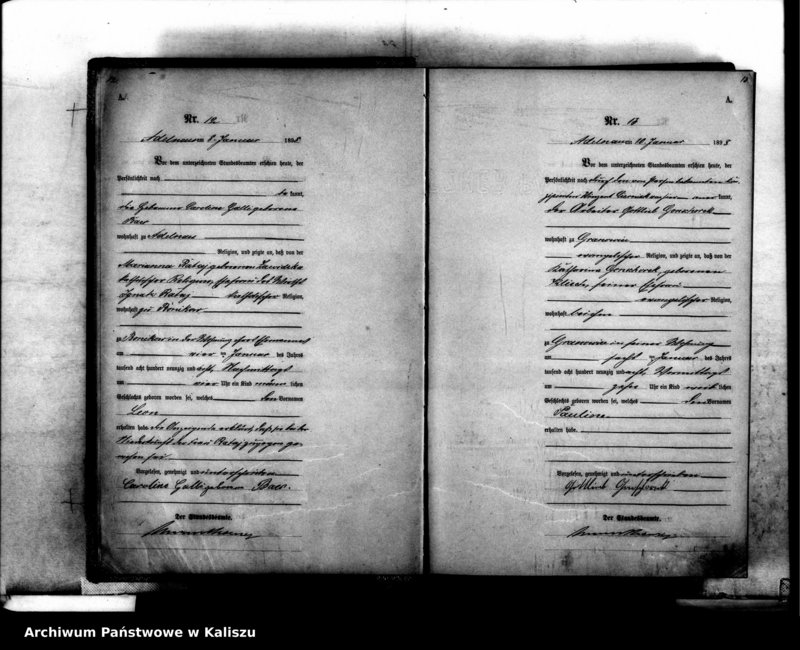 A.
Nr. 12
Adelnau, am 8. Januar 1898
Vor dem unterzeichneten Standesbeamten erschien heute, der
Persönlichkeit nach
be kannt,
die Hebamme Caroline Galle geborene
Baer
wohnhaft zu Adelnau
Religion, und zeigte an, daß von der
Marianna Rataj geborenen
katholischer Religion, Ehefrau des
Ignatz Rataj katholischer Religion,
wohnhaft zu Bonikow
zu Bonikow in der Wohnung ihres Ehemannes
am vier ten Januar des Jahres
tausend acht hundert neunzig und acht Nachmittags
um vier Uhr ein Kind männ lichen
Geschlechts geboren worden sei, welches den Vornamen
Leon
erhalten habe. Die Anzeigende erklärte, daß sie bei der
Niederkunft der Frau Rataj zugegen ge-
wesen sei.
Vorgelesen, genehmigt und unterschrieben
Caroline Galle geborene Baer.
Der Standesbeamte.
A.
Nr. 13
Adelnau, am 10. Januar 1898
Vor dem unterzeichneten Standesbeamten erschien heute, der
Persönlichkeit nach durch den von Person bekannten
kannt,
der Arbeiter Gottlieb
wohnhaft zu
evangelischer Religion, und zeigte an, daß von der
geborenen
seiner Ehefrau
evangelischer Religion,
wohnhaft bei ihm
zu in seiner Wohnung
am sechs ten Januar des Jahres
tausend acht hundert neunzig und acht Vormittags
um zehn Uhr ein Kind weib lichen
Geschlechts geboren worden sei, welches den Vornamen
Pauline
erhalten habe.
Vorgelesen, genehmigt und unterschrieben
Gottlieb
Der Standesbeamte.
Archiwum Państwowe w Kaliszu